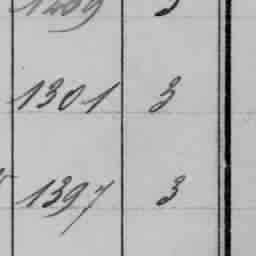 1301 3
1397 3